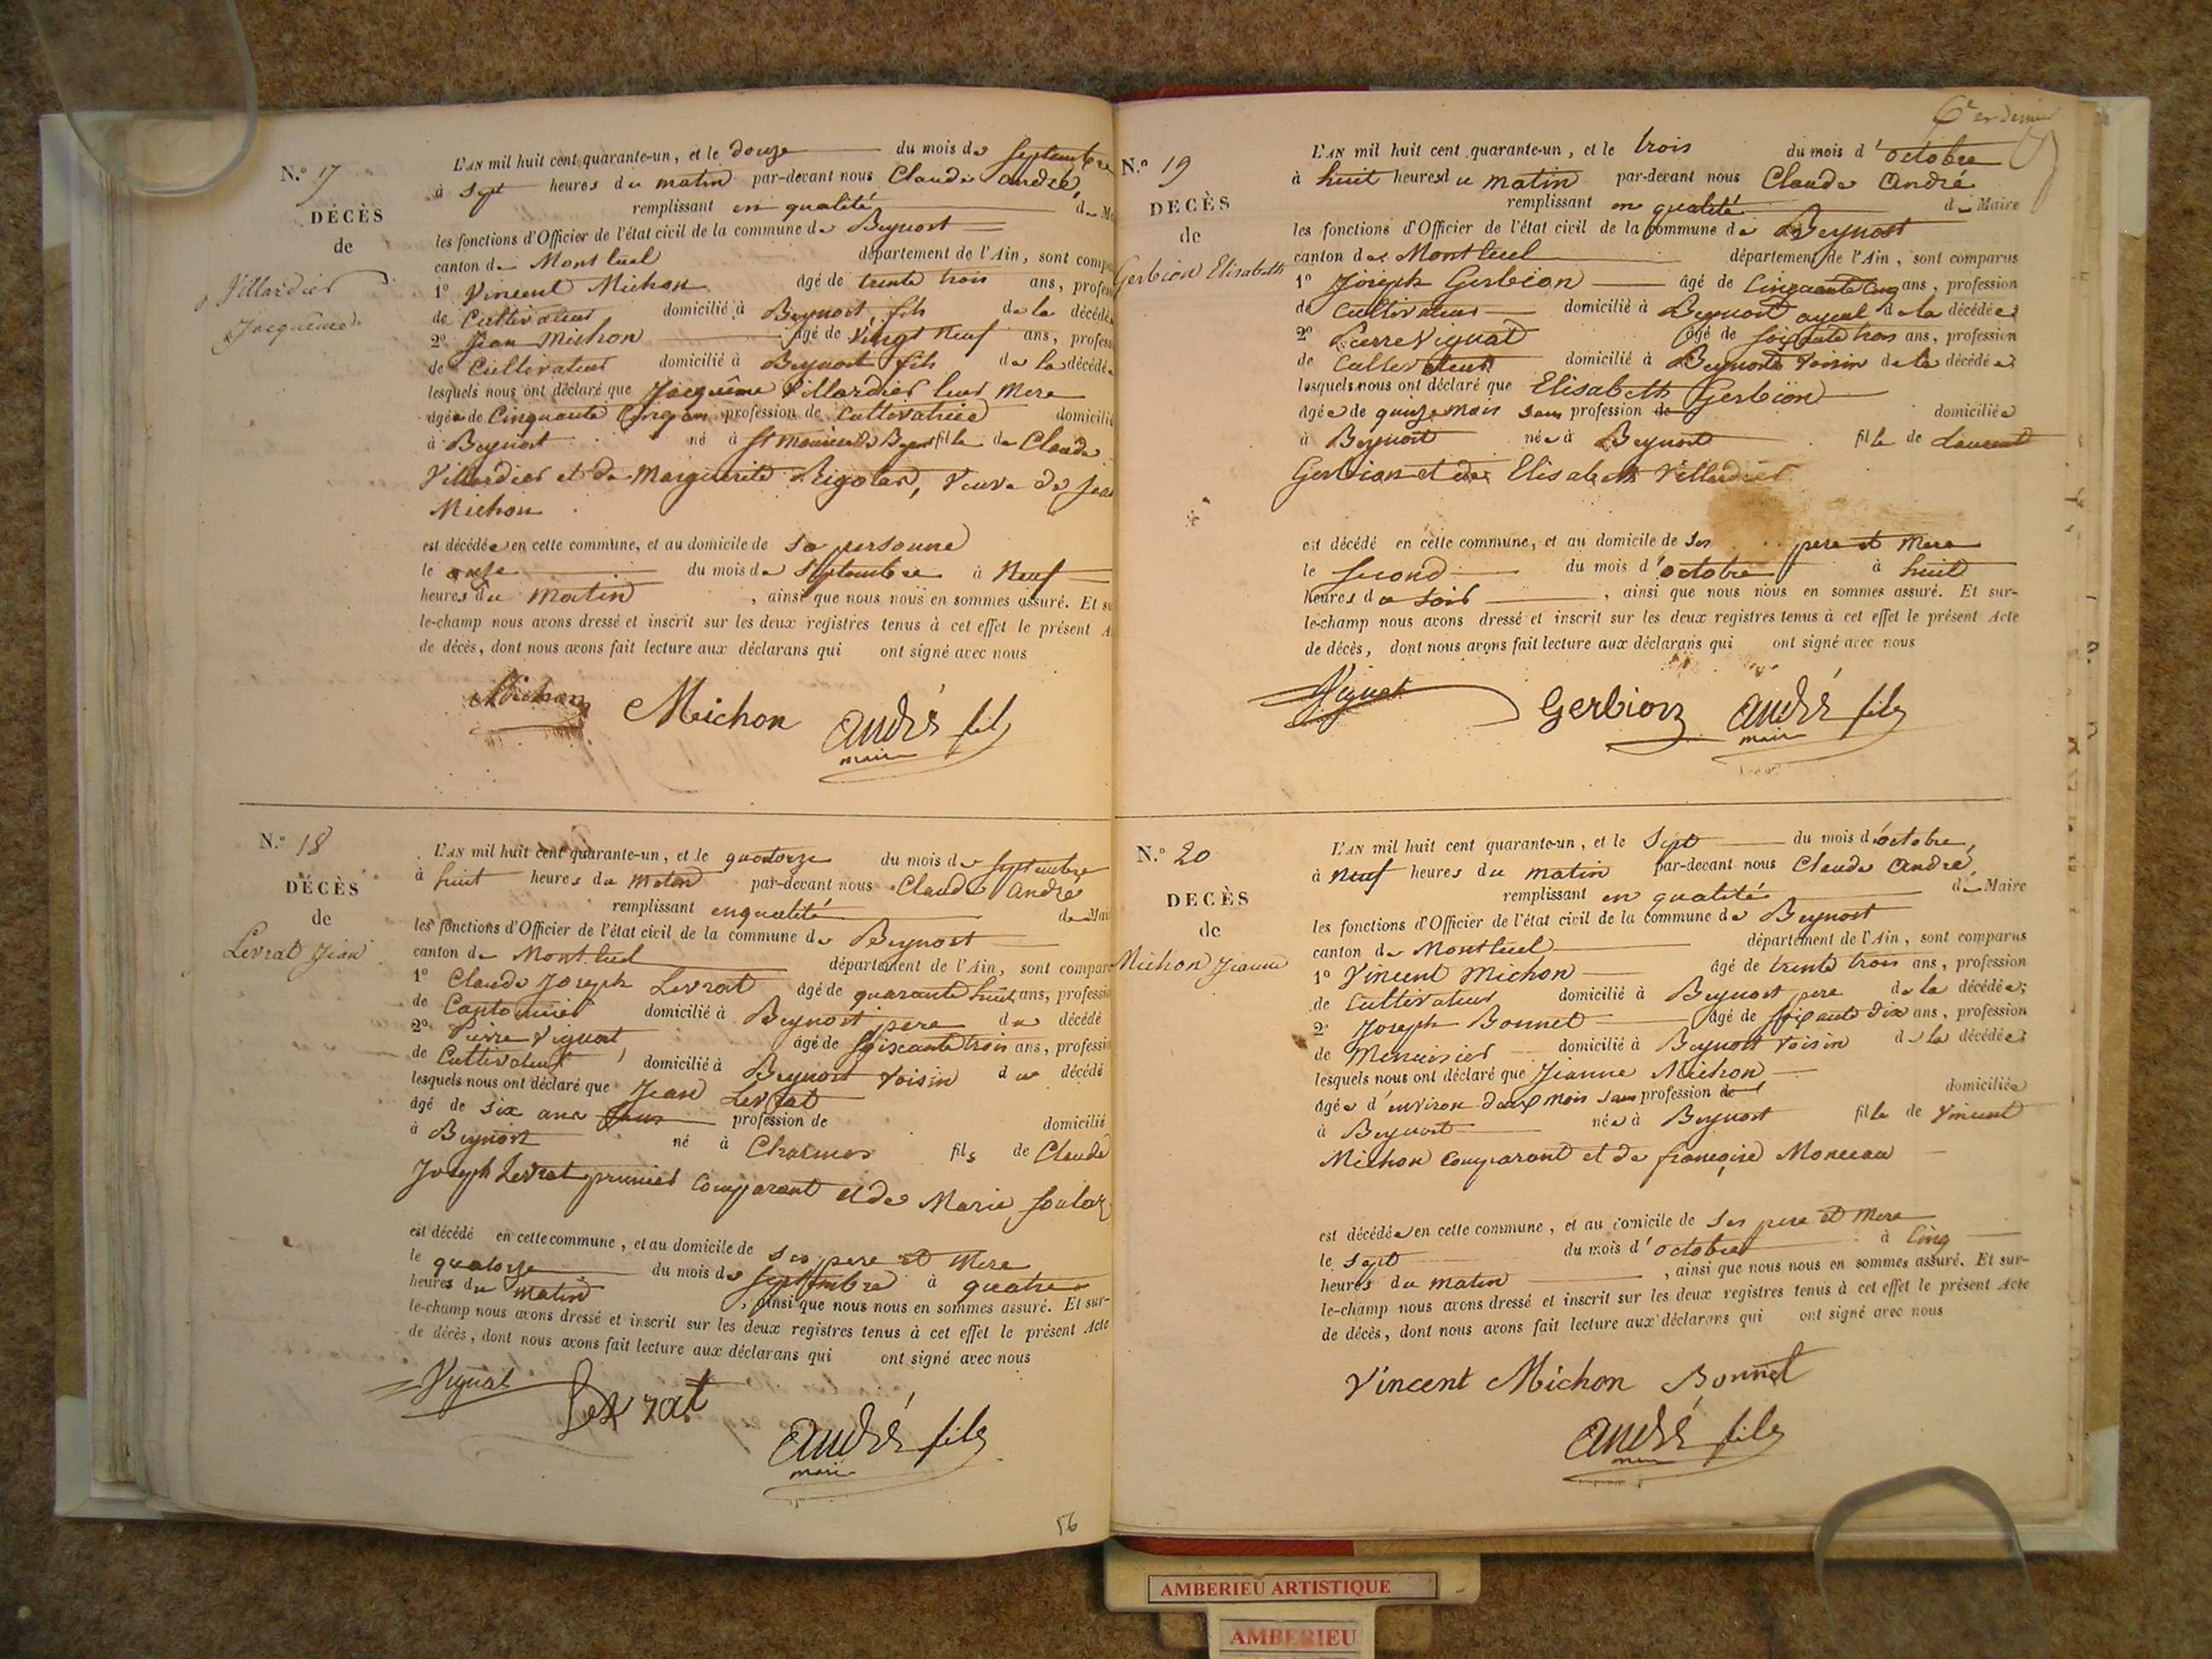 N.º 17
DÉCÈS
de
Villardier
Jacquême
L'AN mil huit cent quarante-un, et le douze du mois de Septembre
à sept heures du matin par-devant nous Claude André,
remplissant en qualité de
les fonctions d'Officier de l'état civil de la commune de Beynost
canton de Montluel département de l'Ain, sont
1º Vincent Michon âgé de trente trois ans,
de Cultivateur domicilié à Beynost, fils de la décédée
2º Jean Michon âgé de Vingt Neuf ans,
de Cultivateur domicilié à Beynost fils de la décédée
lesquels nous ont déclaré que Jacquême Villardier leur Mere
âgée de Cinquante Cinq ans profession de Cultivatrice
à Beynost né à St Maurice de Beynost fille de Claude
Villardier et de Marguerite Rigolar, Veuve de Jean
Michon
est décédée en cette commune, et au domicile de sa personne
le onze du mois de Septembre à Neuf
heures du Matin, ainsi que nous nous en sommes assuré. Et
le-champ nous avons dressé et inscrit sur les deux registres tenus à cet effet le présent
de décès, dont nous avons fait lecture aux déclarans qui ont signé avec nous
Michon Michon André fils
maire
N.º 18
DÉCÈS
de
Levrat Jean
L'AN mil huit cent quarante-un, et le quatorze du mois de Septembre
à huit heures du Matin par-devant nous Claude André
remplissant en qualité de
les fonctions d'Officier de l'état civil de la commune de Beynost
canton de Montluel département de l'Ain, sont
1º Claude Joseph Levrat âgé de quarante huit ans,
de Cantonnier domicilié à Beynost pere du décédé
2º Pierre Vignat âgé de Soixante trois ans,
de Cultivateur domicilié à Beynost Voisin du décédé
lesquels nous ont déclaré que Jean Levrat
âgé de six ans sans profession de domicilié
à Beynost né à Charnos fils de Claude
Joseph Levrat premier Comparant et de Marie
est décédé en cette commune, et au domicile de ses pere et Mere
le quatorze du mois de Septembre à quatre
heures du matin, ainsi que nous nous en sommes assuré. Et sur-
le-champ nous avons dressé et inscrit sur les deux registres tenus à cet effet le présent Acte
de décès, dont nous avons fait lecture aux déclarans qui ont signé avec nous
Vignat Levrat
André fils
maire
56
N.º 19
DÉCÈS
de
Gerbion Elisabeth
6e et dernier
L'AN mil huit cent quarante-un, et le trois du mois d'octobre
à huit heures du matin par-devant nous Claude André
remplissant en qualité de Maire
les fonctions d'Officier de l'état civil de la commune de Beynost
canton de Montluel département de l'Ain, sont comparus
1º Joseph Gerbion âgé de Cinquante Cinq ans, profession
de Cultivateur domicilié à Beynost ayeul de la décédée
2º Pierre Vignat âgé de soixante trois ans, profession
de Cultivateur domicilié à Beynost Voisin de la décédée
lesquels nous ont déclaré que Elisabeth Gerbion
âgée de quinze Mois sans profession de domiciliée
à Beynost née à Beynost fille de Laurent
Gerbion et de Elisabeth Villardier
est décédé en cette commune, et au domicile de ses pere et Mere
le second du mois d'octobre à huit
heures du soir, ainsi que nous nous en sommes assuré. Et sur-
le-champ nous avons dressé et inscrit sur les deux registres tenus à cet effet le présent Acte
de décès, dont nous avons fait lecture aux déclarans qui ont signé avec nous
Vignat Gerbion André fils
maire
N.º 20
DÉCÈS
de
Michon Jeanne
L'AN mil huit cent quarante-un, et le Sept du mois d'octobre,
à Neuf heures du matin par-devant nous Claude André,
remplissant en qualité de Maire
les fonctions d'Officier de l'état civil de la commune de Beynost
canton de Montluel département de l'Ain, sont comparus
1º Vincent Michon âgé de trente trois ans, profession
de Cultivateur domicilié à Beynost pere de la décédée;
2º Joseph Bonnet âgé de soixante Dix ans, profession
de Menuisier domicilié à Beynost Voisin de la décédée
lesquels nous ont déclaré que Jeanne Michon
âgée d'environ deux mois sans profession de domiciliée
à Beynost née à Beynost fille de Vincent
Michon Comparant et de françoise Monceau
est décédée en cette commune, et au domicile de ses pere et Mere
le Sept du mois d'octobre à Cinq
heures du matin, ainsi que nous nous en sommes assuré. Et sur-
le-champ nous avons dressé et inscrit sur les deux registres tenus à cet effet le présent Acte
de décès, dont nous avons fait lecture aux déclarans qui ont signé avec nous
Vincent Michon Bonnet
André fils
maire
AMBERIEU ARTISTIQUE
AMBERIEU